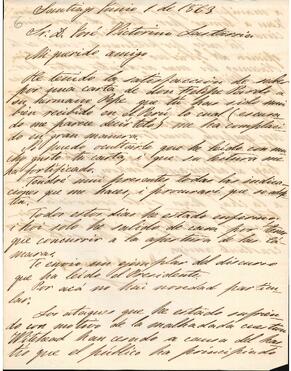 6
Santiago Junio 1º de 1863
Sr. D. José Victorino Lastarria
Mi querido amigo
He tenido la satisfaccion de saber
por una carta de don Felipe Pardo
a su hermano Pepe que tu has sido mui
bien recibido en el Perú, lo cual (escusado
me parece decirtelo) me ha complacido
en gran manera.
No puedo ocultarte que he leido con mu
cho gusto tu carta, i que su lectura me
ha fortificado.
Tendré mui presentes todas las indica
ciones que me haces, i procuraré que se adop
ten.
Todos estos dias he estado enfermo;
i hoi solo he salido de casa por tener
que concurrir a la apertura de las Cá
maras.
Te envio un ejemplar del discurso
que ha leido el Presidente.
Por acá no hai novedad particu
lar.
Los ataques que he estado sufrien
do con motivo de la malhadada cuestion
Whyland han cesado a causa del has
tío que el público ha principiado